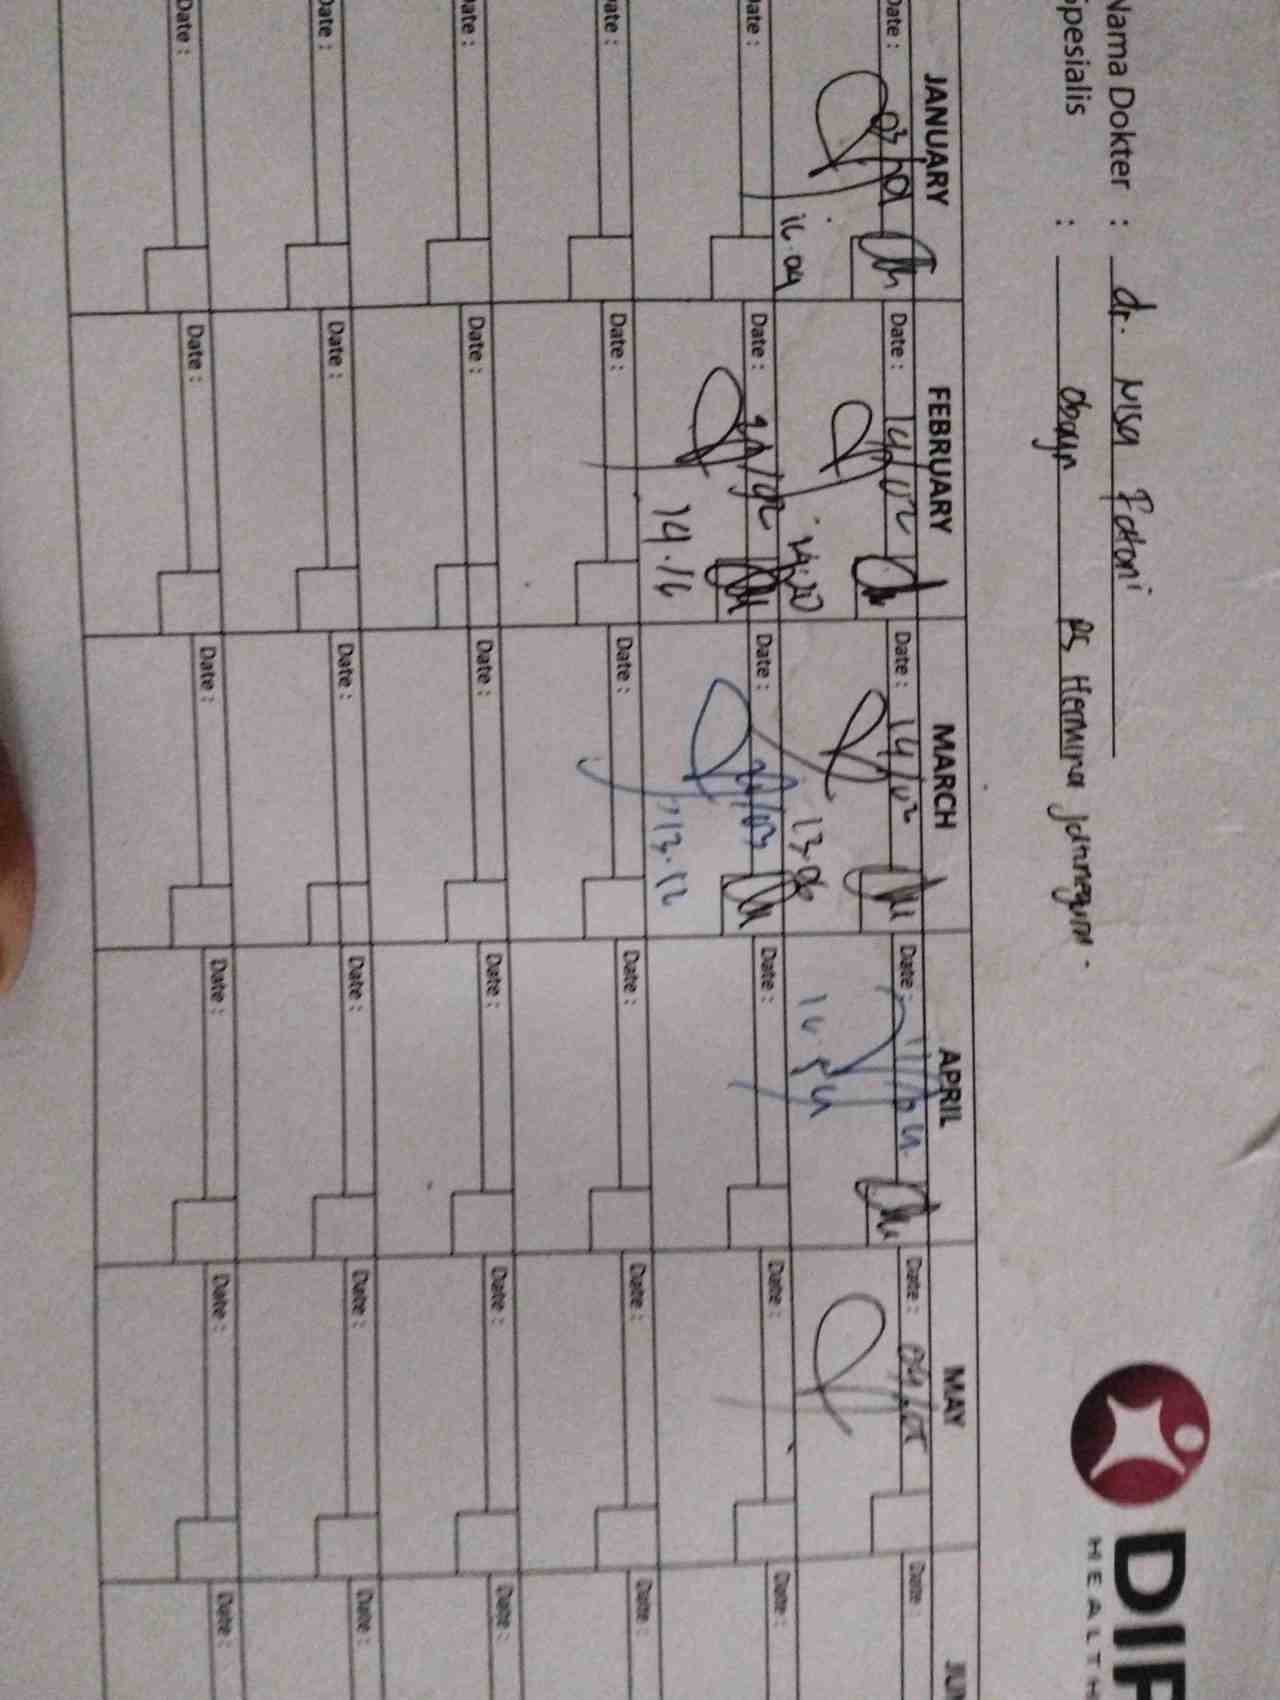 DIP
HEALTH
Nama Dokter : dr. Nisa Fatoni
Spesialis : Obgyn RS Hermina Jatinegara -
JANUARY FEBRUARY MARCH APRIL MAY JUN
Date : Date : 14/02 Date : 14/03 Date : 11/04 Date : 04/05 Date :
16.04 14:20 13.06
Date : Date : Date : 21/03 Date : Date : Date :
14.16 13.12
Date : Date : Date : Date : Date : Date :
Date : Date : Date : Date : Date : Date :
Date : Date : Date : Date : Date : Date :
Date : Date : Date : Date : Date : Date :